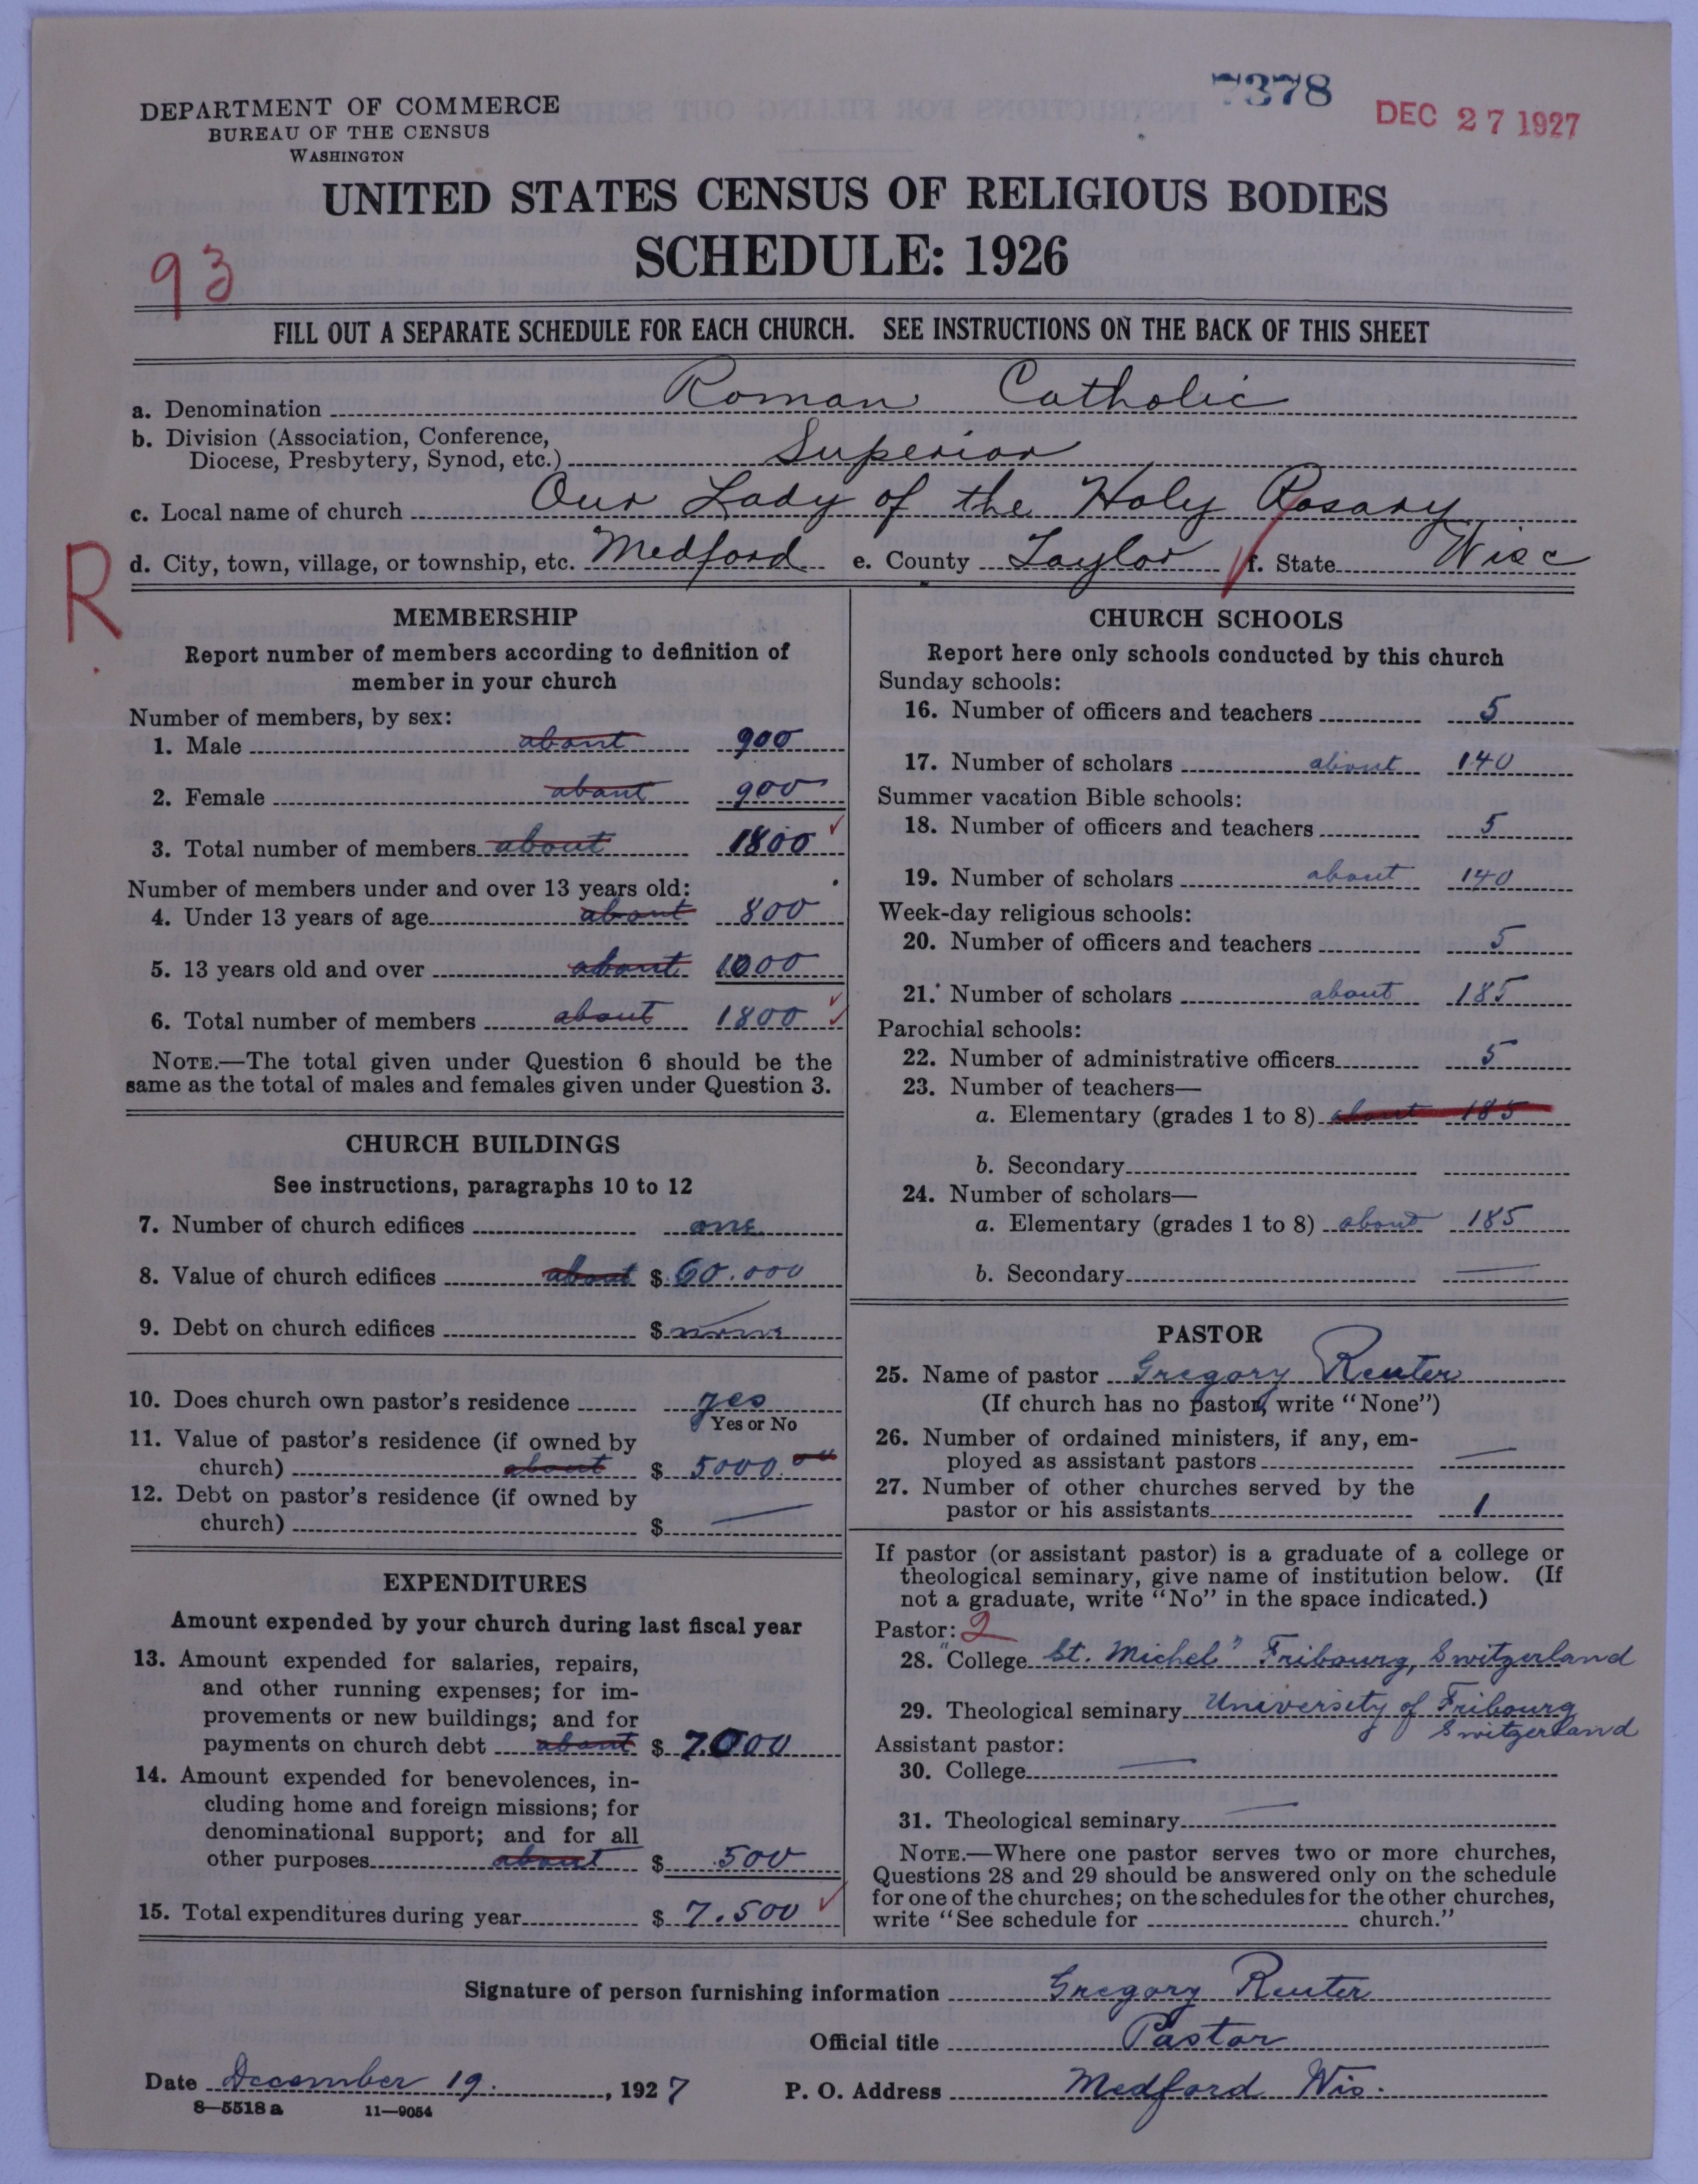 7378
DEC 27 1927
DEPARTMENT OF COMMERCE
BUREAU OF THE CENSUS
WASHINGTON
UNITED STATES CENSUS OF RELIGIOUS BODIES
SCHEDULE: 1926
93
FILL OUT A SEPARATE SCHEDULE FOR EACH CHURCH. SEE INSTRUCTIONS ON THE BACK OF THIS SHEET
a. Denomination Roman Catholic
b. Division (Association, Conference,
Diocese, Presbytery, Synod, etc.) Superior
c. Local name of church Our Lady of the Holy Rosary
R
d. City, town, village, or township, etc. Medford e. County Taylor f. State Wisc
MEMBERSHIP
Report number of members according to definition of
member in your church
Number of members, by sex:
1. Male about 900
2. Female about 900
3. Total number of members about 1800
Number of members under and over 13 years old:
4. Under 13 years of age about 800
5. 13 years old and over about 1000
6. Total number of members about 1800
NOTE.—The total given under Question 6 should be the
same as the total of males and females given under Question 3.
CHURCH BUILDINGS
See instructions, paragraphs 10 to 12
7. Number of church edifices one
8. Value of church edifices about $ 60.000
9. Debt on church edifices $ none
10. Does church own pastor's residence yes
Yes or No
11. Value of pastor's residence (if owned by
church) about $ 5000.00
12. Debt on pastor's residence (if owned by
church) $ —
EXPENDITURES
Amount expended by your church during last fiscal year
13. Amount expended for salaries, repairs,
and other running expenses; for im-
provements or new buildings; and for
payments on church debt about $ 7.000
14. Amount expended for benevolences, in-
cluding home and foreign missions; for
denominational support; and for all
other purposes about $ 500
15. Total expenditures during year $ 7.500
CHURCH SCHOOLS
Report here only schools conducted by this church
Sunday schools:
16. Number of officers and teachers 5
17. Number of scholars about 140
Summer vacation Bible schools:
18. Number of officers and teachers 5
19. Number of scholars about 140
Week-day religious schools:
20. Number of officers and teachers 5
21. Number of scholars about 185
Parochial schools:
22. Number of administrative officers 5
23. Number of teachers—
a. Elementary (grades 1 to 8) about 185
b. Secondary
24. Number of scholars—
a. Elementary (grades 1 to 8) about 185
b. Secondary —
PASTOR
25. Name of pastor Gregory Reuter
(If church has no pastor, write "None")
26. Number of ordained ministers, if any, em-
ployed as assistant pastors —
27. Number of other churches served by the
pastor or his assistants 1
If pastor (or assistant pastor) is a graduate of a college or
theological seminary, give name of institution below. (If
not a graduate, write "No" in the space indicated.)
Pastor: 2
28. College "St. Michel" Fribourg, Switzerland
29. Theological seminary University of Fribourg
Switzerland
Assistant pastor:
30. College —
31. Theological seminary —
NOTE.—Where one pastor serves two or more churches,
Questions 28 and 29 should be answered only on the schedule
for one of the churches; on the schedules for the other churches,
write "See schedule for church."
Signature of person furnishing information Gregory Reuter
Official title Pastor
Date December 19. , 1927 P. O. Address Medford Wis.
8—5518 a 11—9054